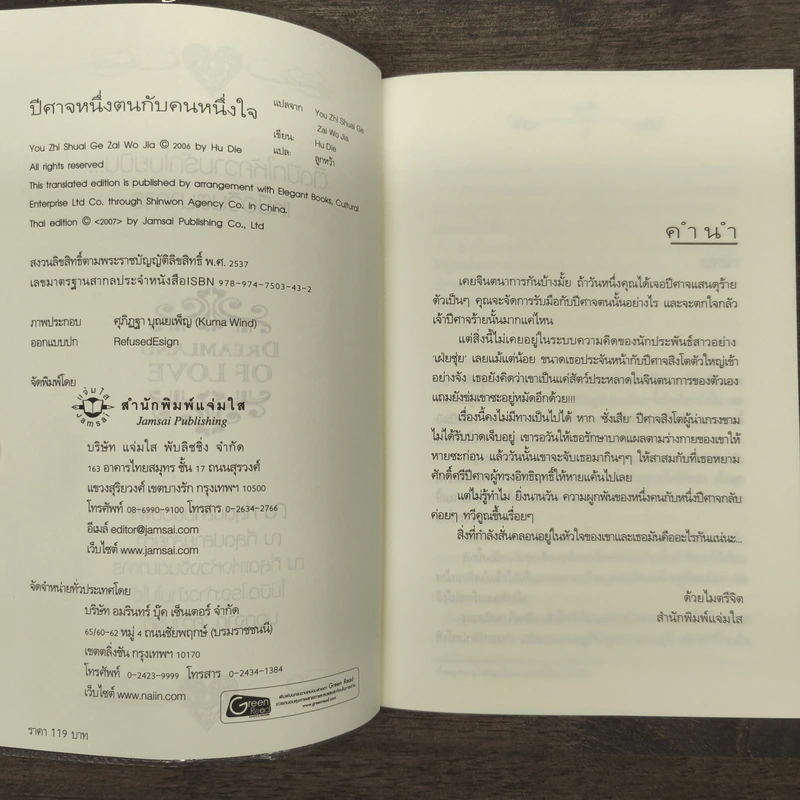 ปีศาจหนึ่งตนกับคนหนึ่งใจ
แปลจาก You Zhi Shuai Ge
Zai Wo Jia
เขียน: Hu Die
แปล: ลูกหว้า
You Zhi Shuai Ge Zai Wo Jia © 2006 by Hu Die
All rights reserved
This translated edition is published by arrangement with Elegant Books, Cultural
Enterprise Ltd Co. through Shinwon Agency Co. in China.
Thai edition © <2007> by Jamsai Publishing Co., Ltd
สงวนลิขสิทธิ์ตามพระราชบัญญัติลิขสิทธิ์ พ.ศ. 2537
เลขมาตรฐานสากลประจำหนังสือISBN 978-974-7503-43-2
ภาพประกอบ ศุภิฏฐา บุณยเพ็ญ (Kuma Wind)
ออกแบบปก RefusedEsign
จัดพิมพ์โดย
แจ่มใส
Jamsai
สำนักพิมพ์แจ่มใส
Jamsai Publishing
บริษัท แจ่มใส พับลิชชิ่ง จำกัด
163 อาคารไทยสมุทร ชั้น 17 ถนนสุรวงศ์
แขวงสุริยวงศ์ เขตบางรัก กรุงเทพฯ 10500
โทรศัพท์ 08-6990-9100 โทรสาร 0-2634-2766
อีเมล์ editor@jamsai.com
เว็บไซต์ www.jamsai.com
จัดจำหน่ายทั่วประเทศโดย
บริษัท อมรินทร์ บุ๊ค เซ็นเตอร์ จำกัด
65/60-62 หมู่ 4 ถนนชัยพฤกษ์ (บรมราชชนนี)
เขตตลิ่งชัน กรุงเทพฯ 10170
โทรศัพท์ 0-2423-9999 โทรสาร 0-2434-1384
เว็บไซต์ www.naiin.com
Green Read
www.greenread.com
ราคา 119 บาท
คำนำ
เคยจินตนาการกันบ้างมั้ย ถ้าวันหนึ่งคุณได้เจอปีศาจแสนดุร้าย
ตัวเป็นๆ คุณจะจัดการรับมือกับปีศาจตนนั้นอย่างไร และจะตกใจกลัว
เจ้าปีศาจร้ายนั้นมากแค่ไหน
แต่สิ่งนี้ไม่เคยอยู่ในระบบความคิดของนักประพันธ์สาวอย่าง
'เฝยซุ่ย' เลยแม้แต่น้อย ขนาดเธอประจันหน้ากับปีศาจสิงโตตัวใหญ่เข้า
อย่างจัง เธอยังคิดว่าเขาเป็นแค่สัตว์ประหลาดในจินตนาการของตัวเอง
แถมยังข่มเขาซะอยู่หมัดอีกด้วย!!!
เรื่องนี้คงไม่มีทางเป็นไปได้ หาก 'ซั่งเสีย' ปีศาจสิงโตผู้น่าเกรงขาม
ไม่ได้รับบาดเจ็บอยู่ เขารอวันให้เธอรักษาบาดแผลตามร่างกายของเขาให้
หายซะก่อน แล้ววันนั้นเขาจะจับเธอมากินๆๆ ให้สาสมกับที่เธอหยาม
ศักดิ์ศรีปีศาจผู้ทรงอิทธิฤทธิ์ให้หายแค้นไปเลย
แต่ไม่รู้ทำไม ยิ่งนานวัน ความผูกพันของหนึ่งคนกับหนึ่งปีศาจกลับ
ค่อยๆ ทวีคูณขึ้นเรื่อยๆ
สิ่งที่กำลังสั่นคลอนอยู่ในหัวใจของเขาและเธอมันคืออะไรกันแน่นะ...
ด้วยไมตรีจิต
สำนักพิมพ์แจ่มใส